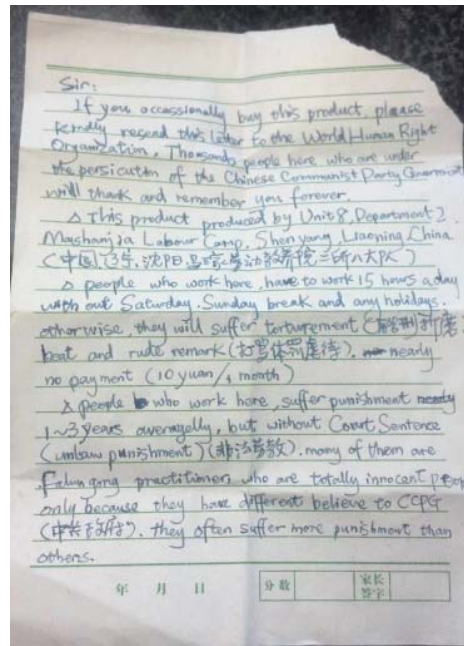 Sir:
If you occassionally buy this product, please
kindly resend this letter to the World Human Right
Organization. Thousands people here who are under
the persicuton of the Chinese Communist Party Government
will thank and remember you forever.
△ This product produced by Unit 8, Department 2,
Mashanjia Labour Camp, Shenyang, Liaoning, China.
(中国,辽宁,沈阳马三家劳动教养院二所八大队)
△ people who work here, have to work 15 hours a day
with out Saturday, Sunday break and any holidays.
otherwise, they will suffer torturement
beat and rude remark (打骂体罚虐待). nearly
no payment (10 yuan/1 month)
△ people who work here, suffer punishment
1~3 years averagelly, but without Court Sentence
(unlaw punishment) (非法劳教). many of them are
Falun gong practitioners who are totally innocent people
only because they have different believe to CCPG
(中共政府). they often suffer more punishment than
others.
年 月 日 分数 家长
签字